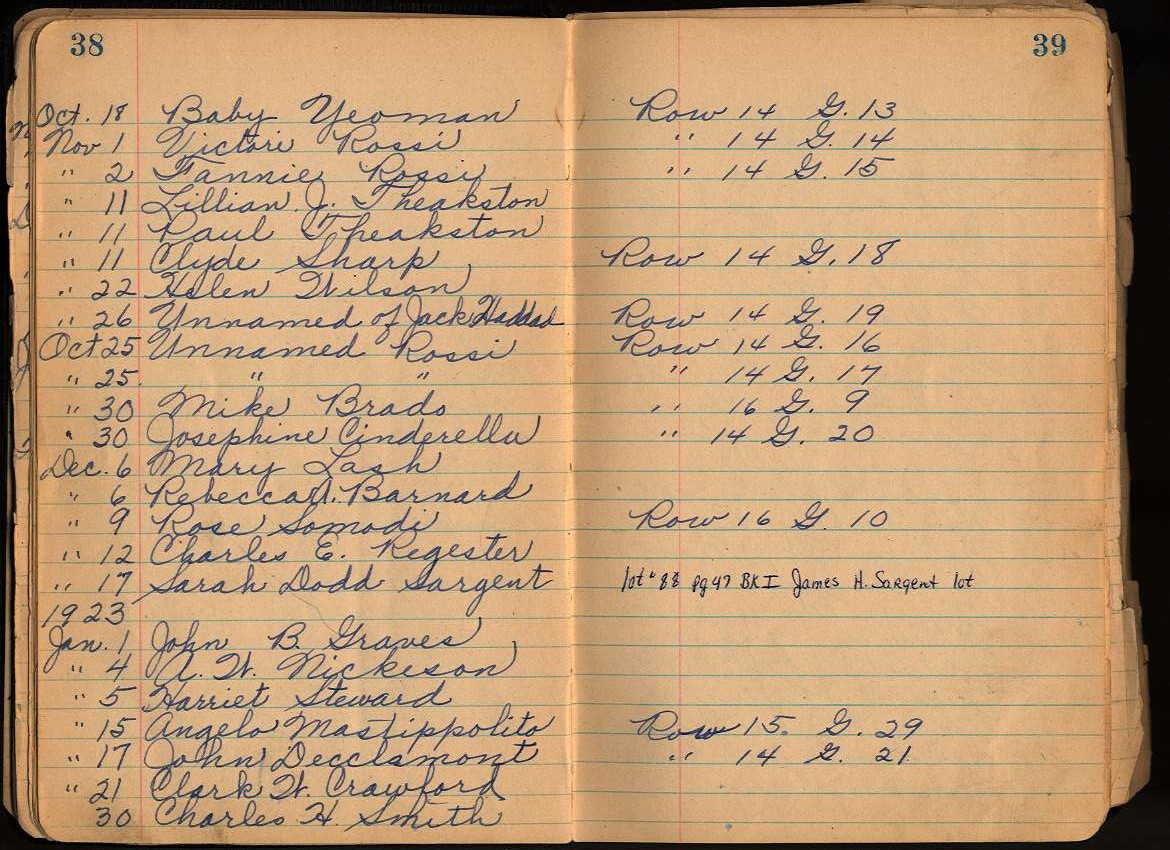 38 39
Oct. 18 Baby Yeoman Row 14 G. 13
Nov 1 Victori Rossi " 14 G. 14
" 2 Fannie Rossi " 14 G. 15
" 11 Lillian J. Theakston
" 11 Paul Theakston
" 11 Clyde Sharp Row 14 G. 18
" 22 Helen Wilson
" 26 Unnamed of Jack Haddad Row 14 G. 19
Oct 25 Unnamed Rossi Row 14 G. 16
" 25. " " " 14 G. 17
" 30 Mike Brado " 16 G. 9
" 30 Josephine Cinderella " 14 G. 20
Dec. 6 Mary Lash
" 6 Rebecca A. Barnard
" 9 Rose Somodi Row 16 G. 10
" 12 Charles E. Regester
" 17 Sarah Dodd Sargent lot # 88 pg 47 BK I James H. Sargent lot
1923
Jan. 1 John B. Graves
" 4 A. W. Nickeson
" 5 Harriet Steward
" 15 Angelo Mastippolito Row 15. G. 29
" 17 John Decclamont " 14 G. 21
" 21 Clark W. Crawford
30 Charles H. Smith